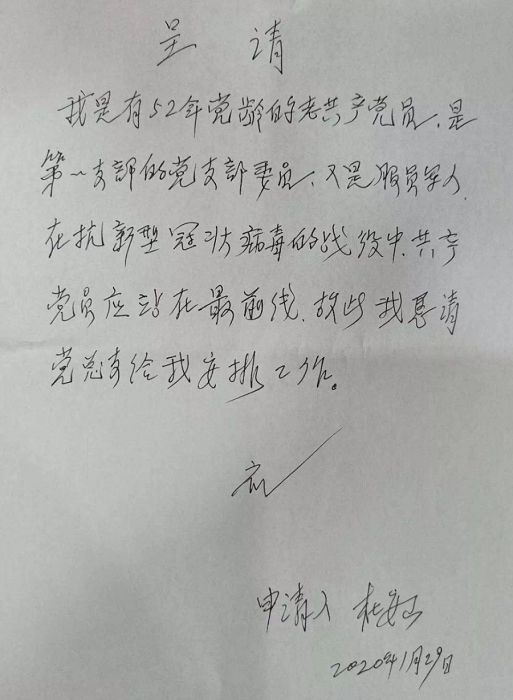 呈 请
我是有52年党龄的老共产党员、是
第一支部的党支部委员、又是服员军人.
在抗新型冠状病毒的战役中.共产
党员应站在最前线.故此我恳请
党总支给我安排工作。
申请人 杜
2020年1月29日